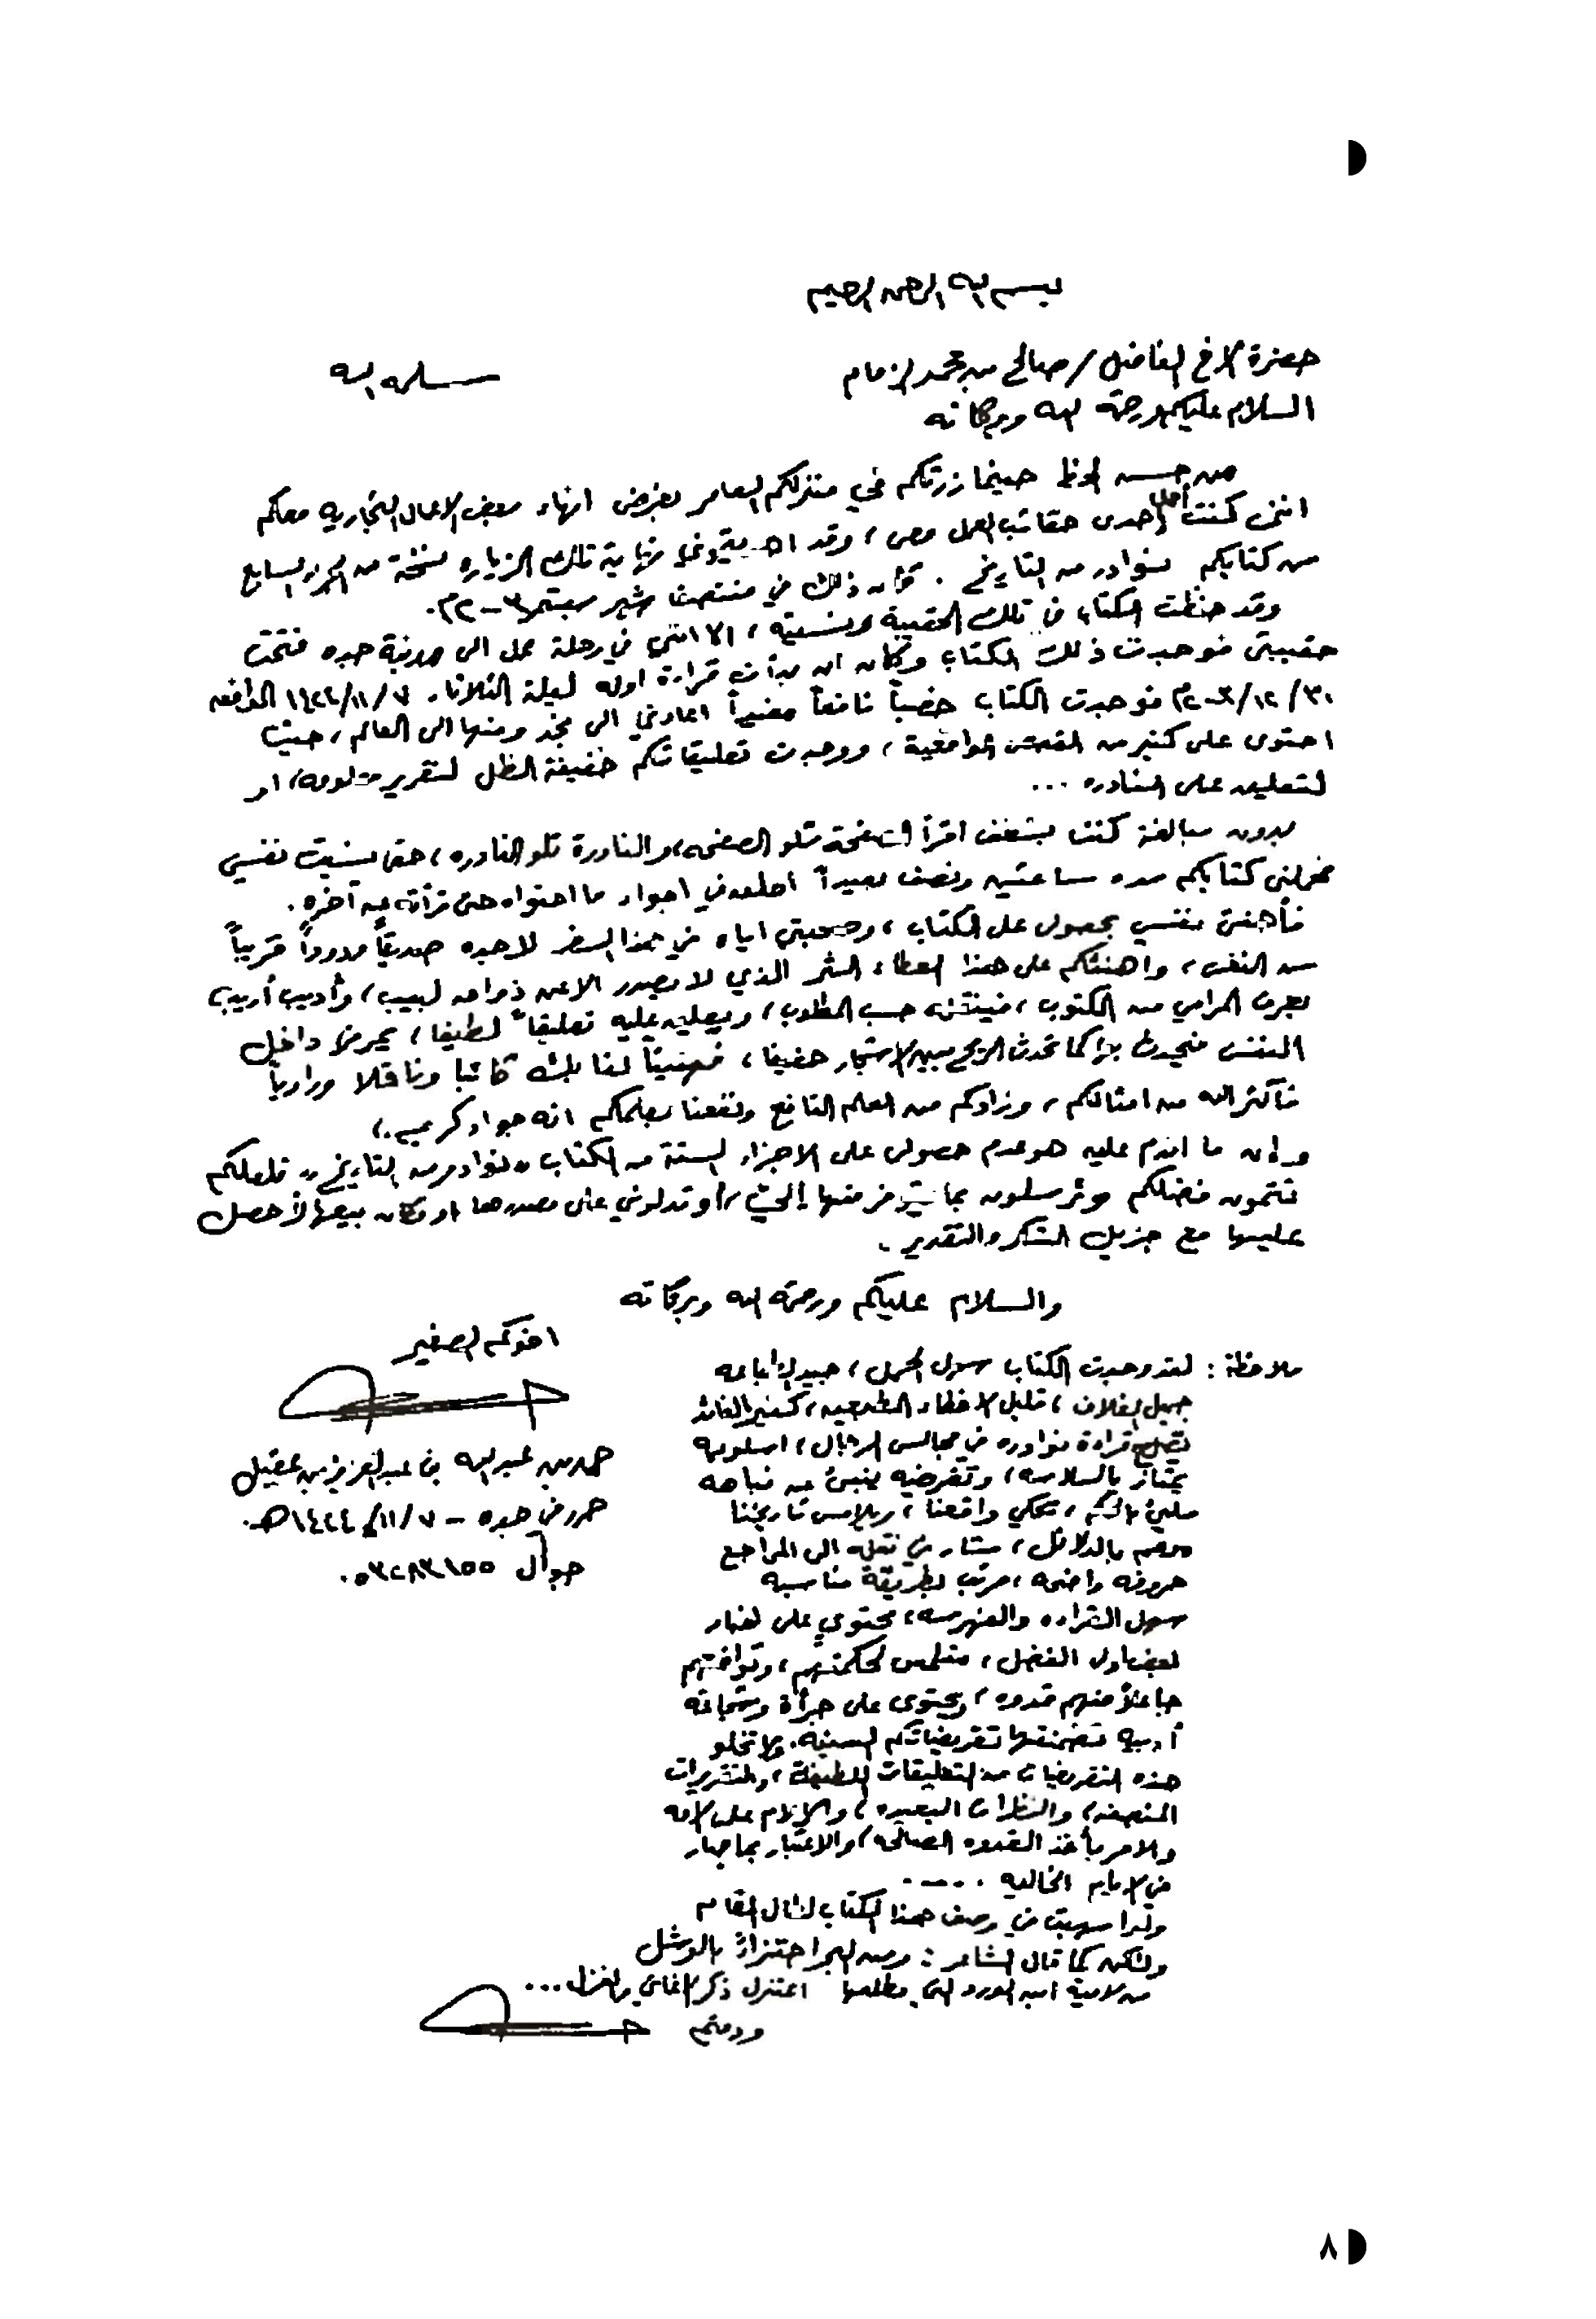 بسم الله الرحمن الرحيم
حضرة الاخ الفاضل / صالح بن محمد الزمام سلمه الله
السلام عليكم ورحمة الله وبركاته
من حسن الحظ حينما زرتكم في منزلكم العامر بغرض انهاء بعض الاعمال التجاريه معكم
انني كنت أحمل احدى حقائب العمل معي، وقد اهديتموني نهاية تلك الزياره نسخة من الجزء السابع
من كتابكم نوادر من التاريخ. وكان ذلك في منتصف شهر سبتمبر ٢٠٠٣م.
وقد حفظت الكتاب في تلك الحقيبة ونسيته، الا انني في رحلة عمل الى مدينة جده فتحت
حقيبتي فوجدت ذلك الكتاب وكان ان بدأت قراءة اوله ليلة الثلاثاء ١٤٢٤/١١/٧ الموافق
٢٠٠٣/١٢/٣٠م فوجدت الكتاب خصباً نافعاً مفيداً اعادني الى نجد ومنها الى العالم، حيث
احتوى على كثير من القصص الواقعية، ووجدت تعليقاتكم خفيفة الظل لتقرير مدلوله، او
لتعليق على النادره ...
بدون مبالغة كنت بشغف اقرأ الصفحة تلو الصفحه، والنادرة تلو النادره، حتى نسيت نفسي
فعزلني كتابكم مده ساعتين ونصف بعيداً احلق في اجواء ما احتواه حتى قرأته عن آخره.
فأهنئ نفسي بحصولي على الكتاب، وصحبتي اياه في هذا السفر لاجده صديقاً ودوداً قريباً
من النفس، واهنئكم على هذا العطاء الثر الذي لا يصدر الا عن ذواق لبيب، وأديب أريب
يعرف المرامي من المكتوب، فينتقيه حسب المطلوب، ويعلق عليه تعليقاً لطيفا، يجري داخل
النفس فيحدث بها كما تحدث الريح بين الاشجار حفيفا، فهنيئاً لنا بك كاتبا وناقلا وراوياً
فأكثر الله من امثالكم، وزادكم من العلم النافع ونفعنا بعلمكم انه جواد كريم.،
وان ما اندم عليه هو عدم حصولي على الاجزاء الستة من الكتاب "نوادر من التاريخ" فلعلكم
تتمون فضلكم وترسلون بما يتوفر منها إليّ، أو تدلوني على مصدرها او مكان بيعها لأحصل
عليها مع جزيل الشكر والتقدير.
والسلام عليكم ورحمة الله وبركاته
اخوكم الصغير
حمد بن عبدالله بن عبدالعزيز بن عقيل
حرر في جده - ١٤٢٤/١١/٧هـ.
جوال
ملاحظة: لقد وجدت الكتاب سهل الحمل، جيد الطباعه
جميل الغلاف، قليل الاخطاء المطبعيه، كثير الفائده
تصلح قراءة نوادره في مجالس الرجال، اسلوبه
يمتاز بالسلاسه، وتقريضه ينبئ عن نباهه
ملئ بالحكم، تحكي واقعنا، ويلامس تاريخنا
مدعم بالدلائل، يشار في نقله الى المراجع
حروفه واضحه، مرتب بطريقة مناسبه
سهل القراءه والفهرسه، محتوي على اخبار
بعض اولي الفضل، متلمس لحكمتهم،
جاعلاً منهم قدوه، ويحتوى على جرأة وشجاعه
أدبيه تضمنتها تقريضاتكم الحسنه. ولا تخلو
هذه التقريضات من التعليقات اللطيفة، والتقريرات
المنصفه، والنظرات البعيده،
والامر بأخذ القدوه الصالحه، والاعتبار بما صار
في الايام الخاليه ....
ولو اسهبت في وصف هذا الكتاب لطال المقام
ولكن كما قال الشاعر: ومن البحر اجتزاءً بالوشل
من لامية ابن الورد التي مطلعها اعتزل ذكر الاغاني والغزل...
ودمتم
٨